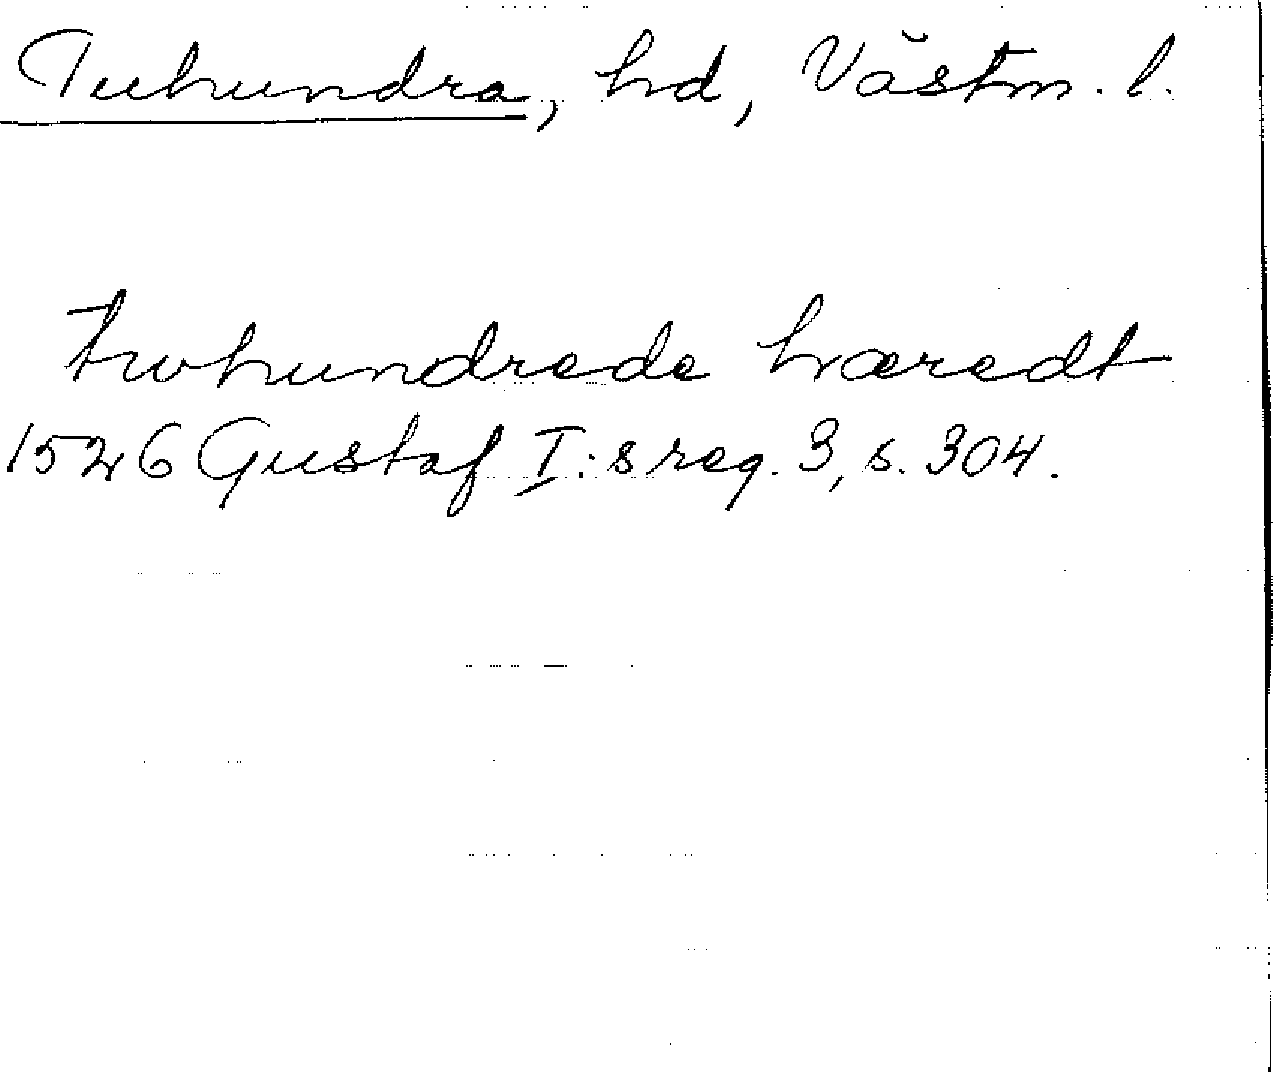 Tuhundra, hd, Västm. l.
Twhundrede hæredt
1526 Gustaf I:s reg. 3, s. 304.